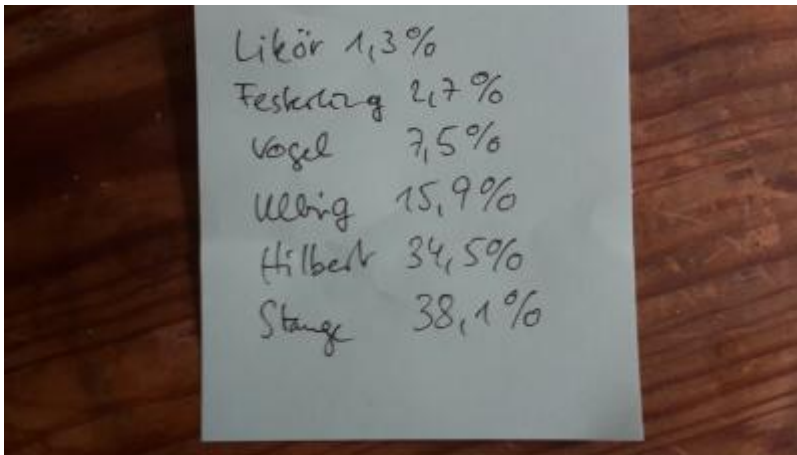 Likör 1,3%
Festerling 2,7%
Vogel 7,5%
Ulbig 15,9%
Hilbert 34,5%
Stange 38,1%